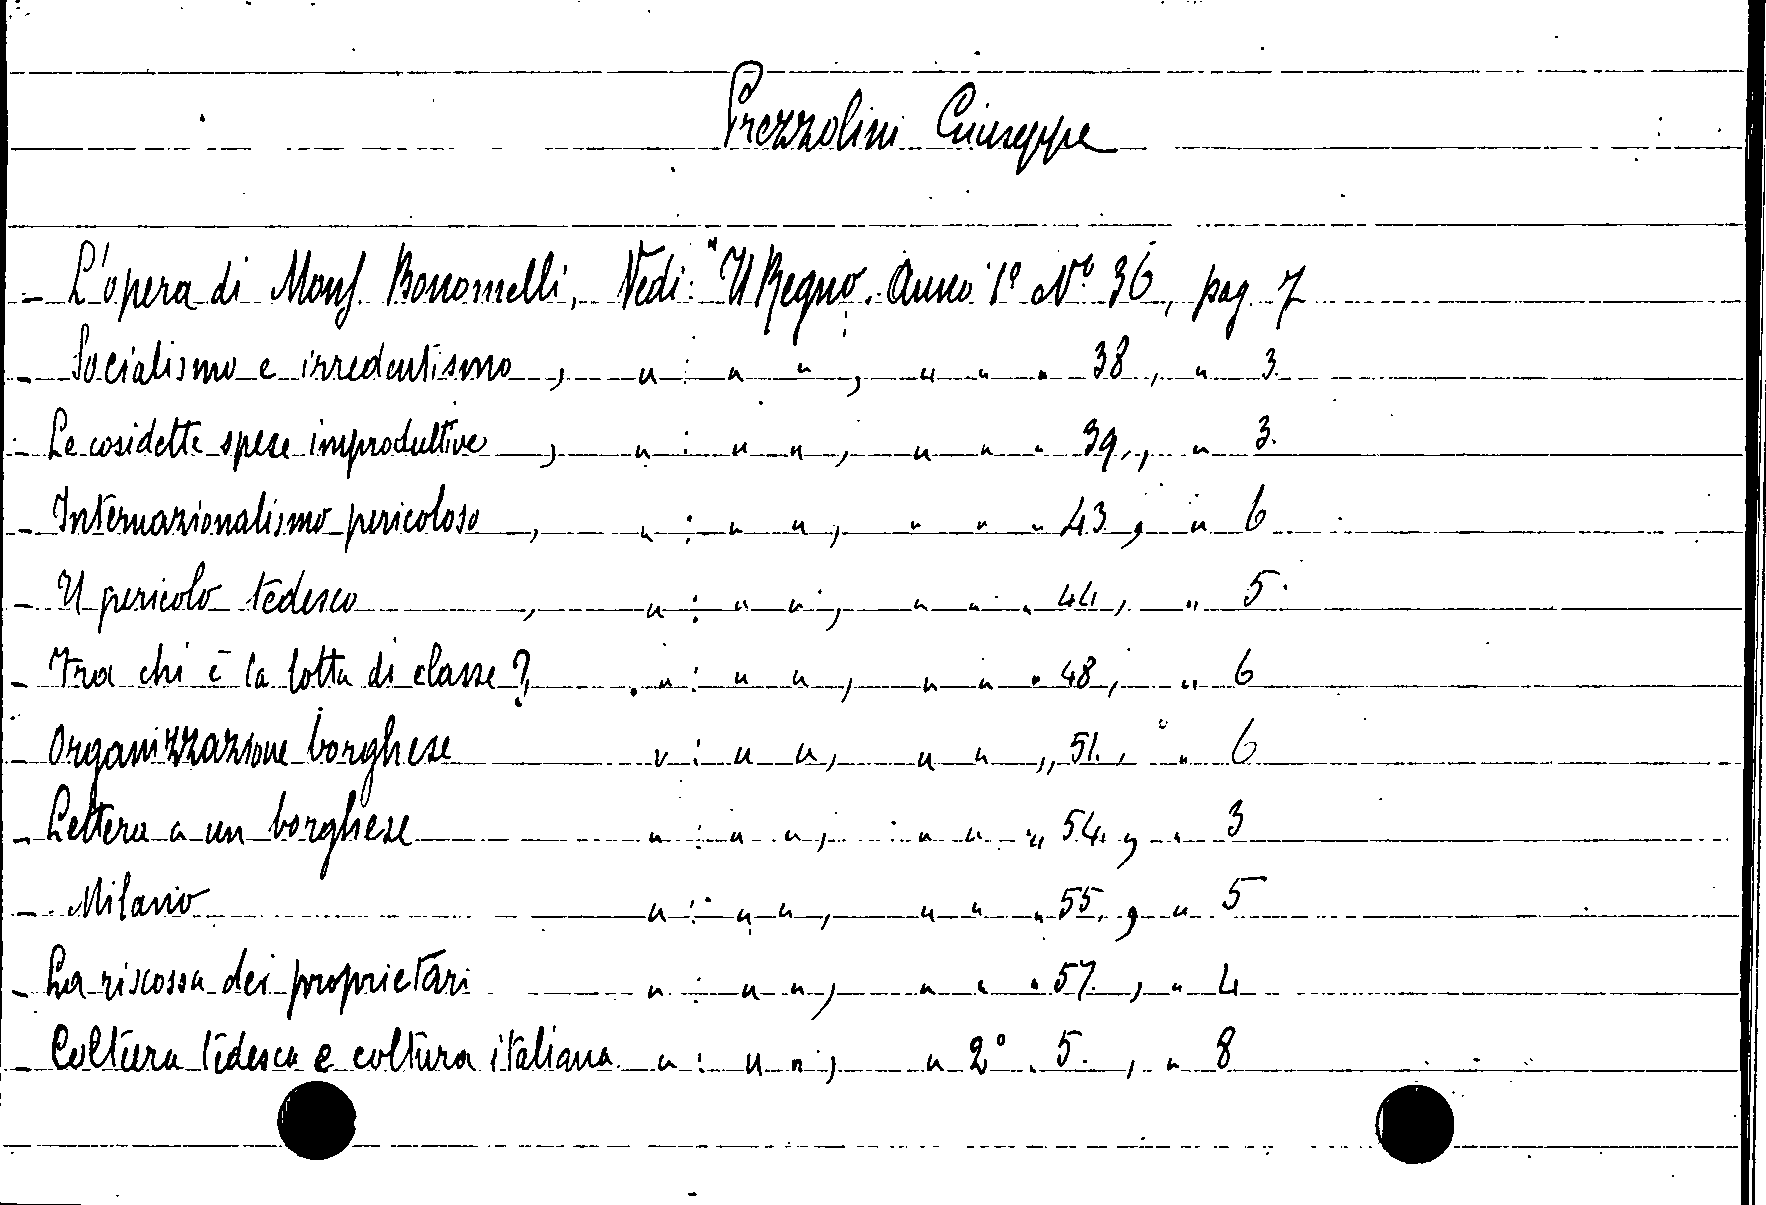 Prezzolini Giuseppe
- L'opera di Mons. Bonomelli, Vedi: "Il Regno. Anno 1° N° 36, pag. 7
- Socialismo e irredentismo, " : " " , " " " 38, " 3.
- Le cosidette spese improduttive, " : " " , " " " 39., " 3.
- Internazionalismo pericoloso, " : " " , " " " 43, " 6
- Il pericolo tedesco, " : " " , " " " 44, " 5.
- Fra chi è la lotta di classe?, " : " " , " " " 48, " 6
- Organizzazione borghese " : " " , " " " 51., " 6
- Lettera a un borghese " : " " , " " " 54., " 3
- Milano " : " " , " " " 55., " 5
- La riscossa dei proprietari " : " " , " " " 57., " 4
- Coltura tedesca e coltura italiana " : " " , " 2° . 5. , " 8